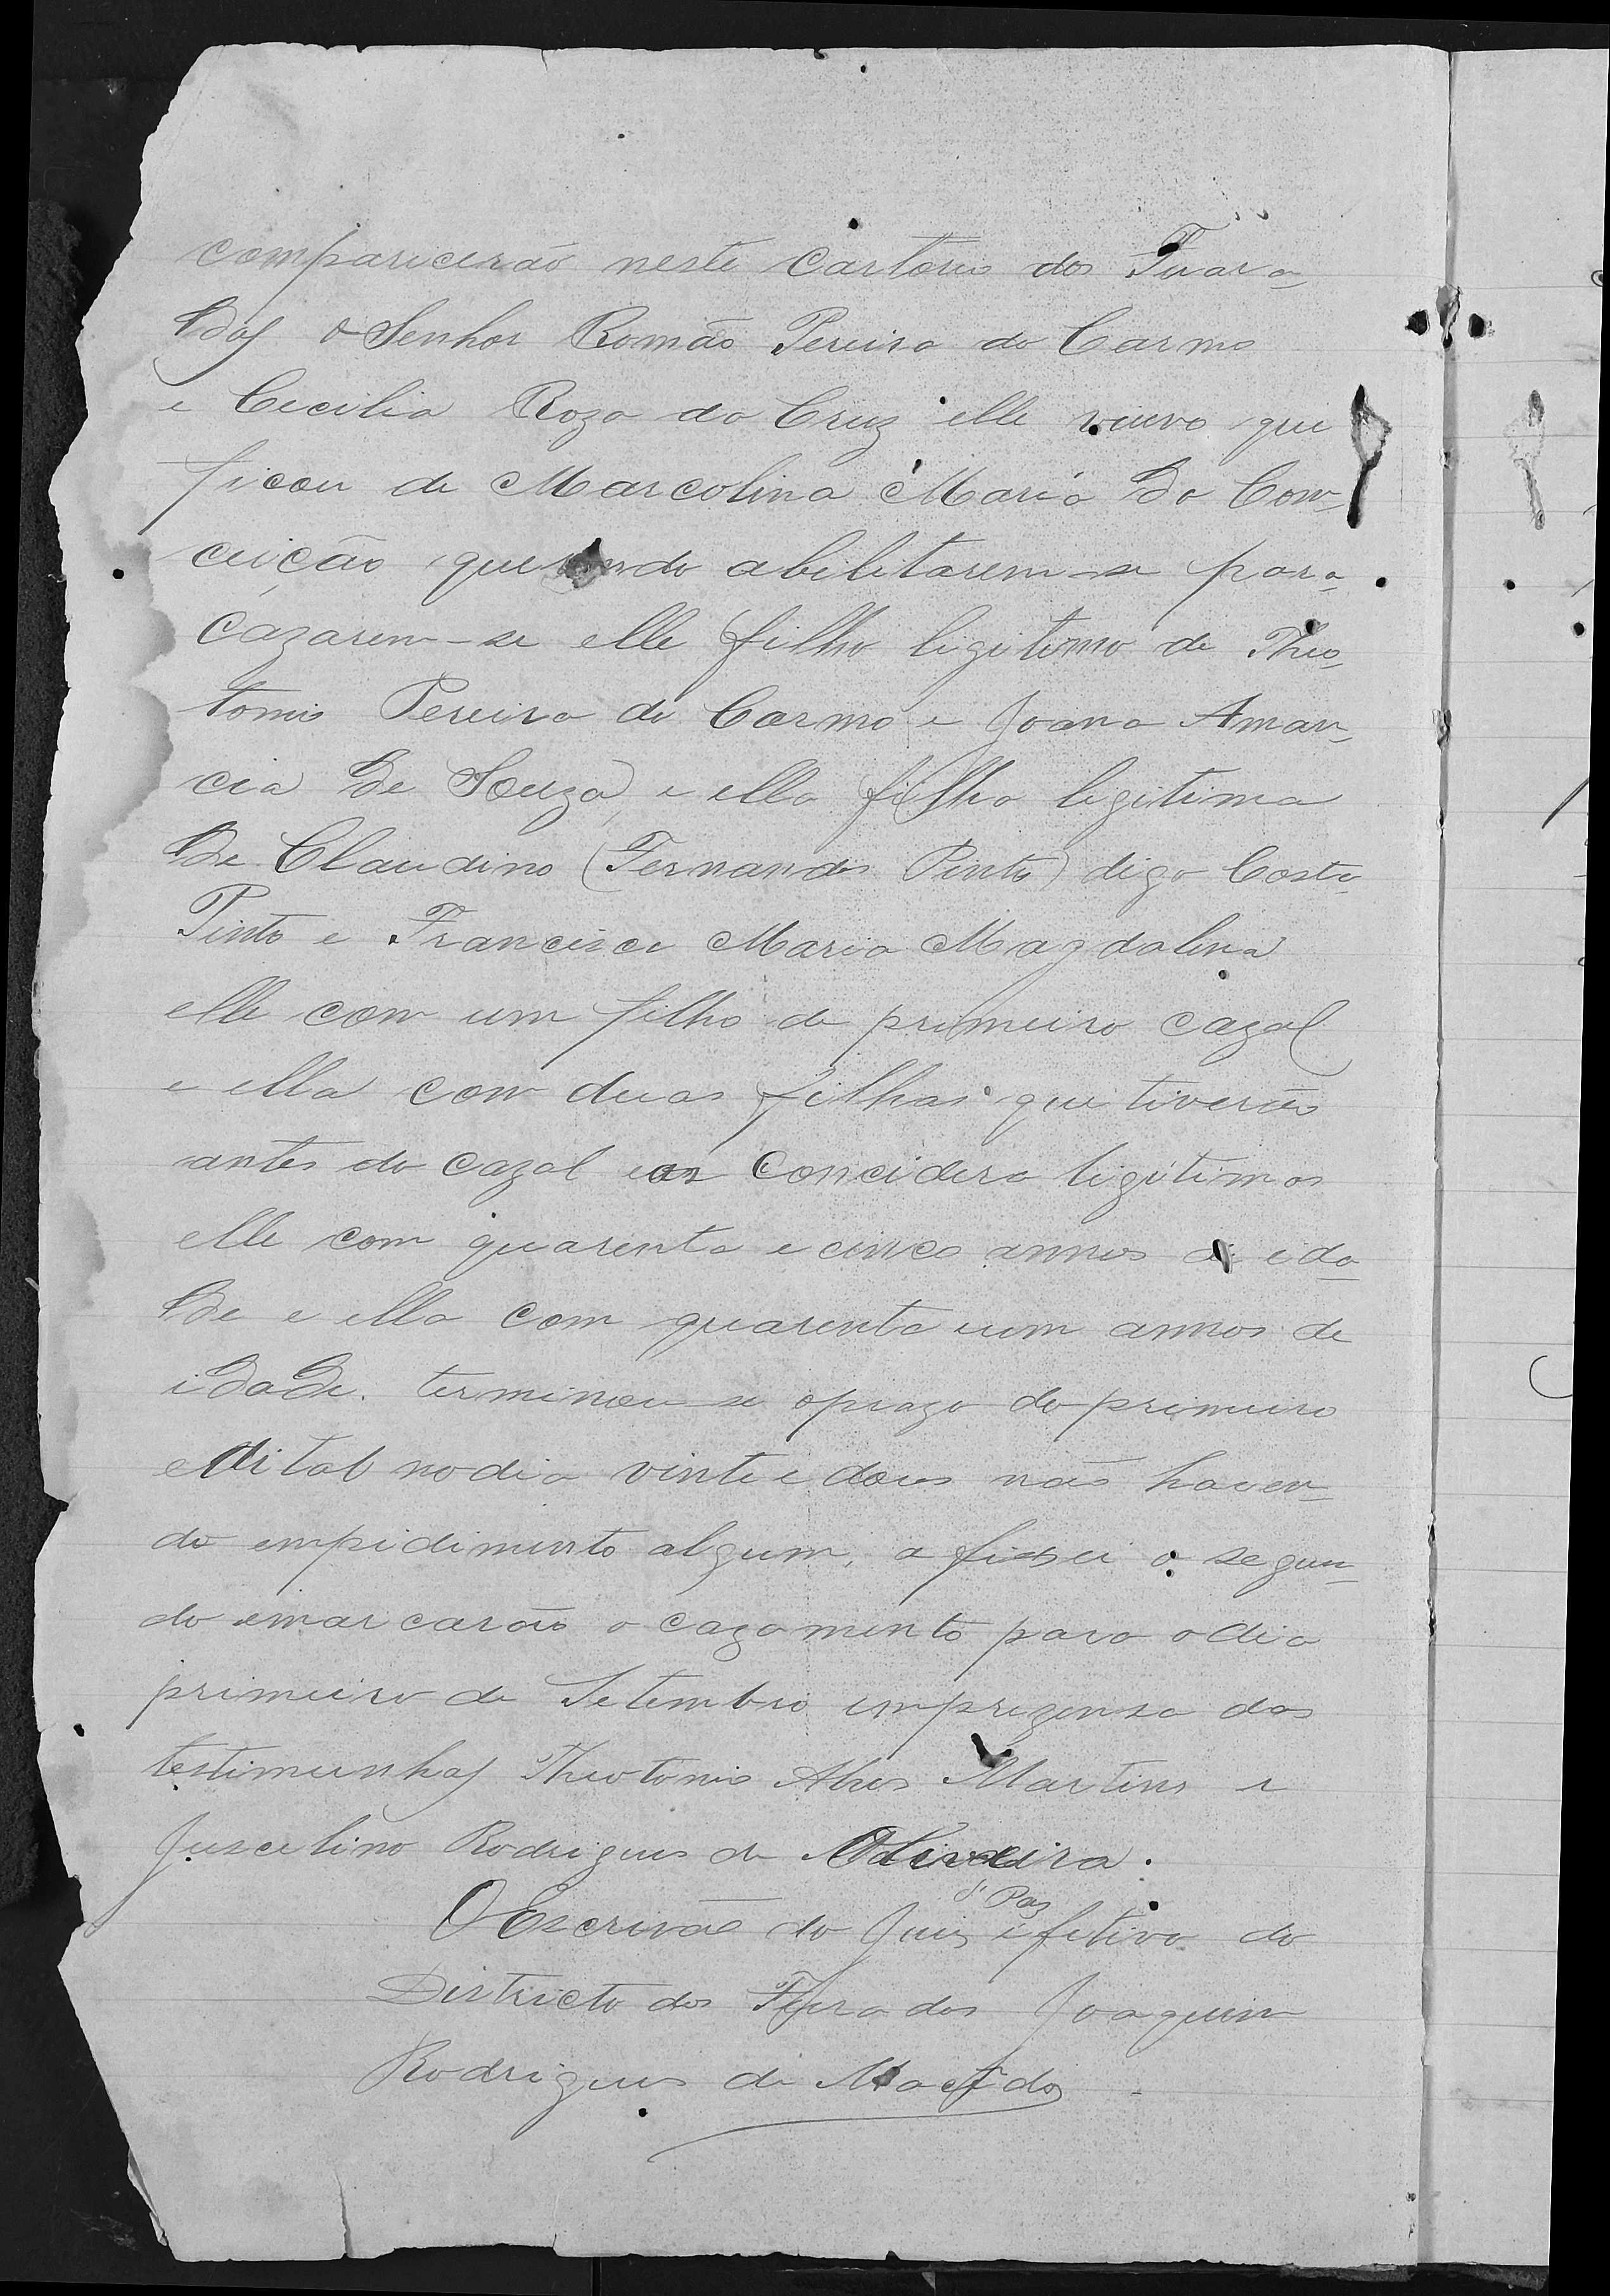 comparicerão neste Cartorio dos Fuara-
Dos o Senhor Romão Pereira do Carmo
e Cecilia Roza da Cruz elle viuvo que
ficou de Marcolina Maria Da Con-
ceição querendo abilitarem-se para
Cazarem-se elle filho ligitimo de Theo-
tonio Pereira do Carmo e Joana Aman-
cia De Souza, e ella filha legitima
De Claudino (Fernandes Pinto) digo Costa
Pinto e Francisca Maria Magdalena
elle com um filho do primeiro cazal
e ella com duas filhas que tiverão
antes do cazal e as Concidera ligitimas
elle com quarenta e cinco annos de ida-
De e ella com quarenta e um annos de
idaDe. terminou-se o prazo do primeiro
edital no dia vinte e dois não haven-
do empidimento algum, a fixei o segun-
do e marcarão o cazamento para o dia
primeiro de Setembro em prezensa das
testimunhas Theotonio Alves Martins e
Juscelino Rodrigues de Oliveira.
O Escrivão do Juiz d' Paz efetivo do
Districto dos Furados Joaquim
Rodrigues de Macedo